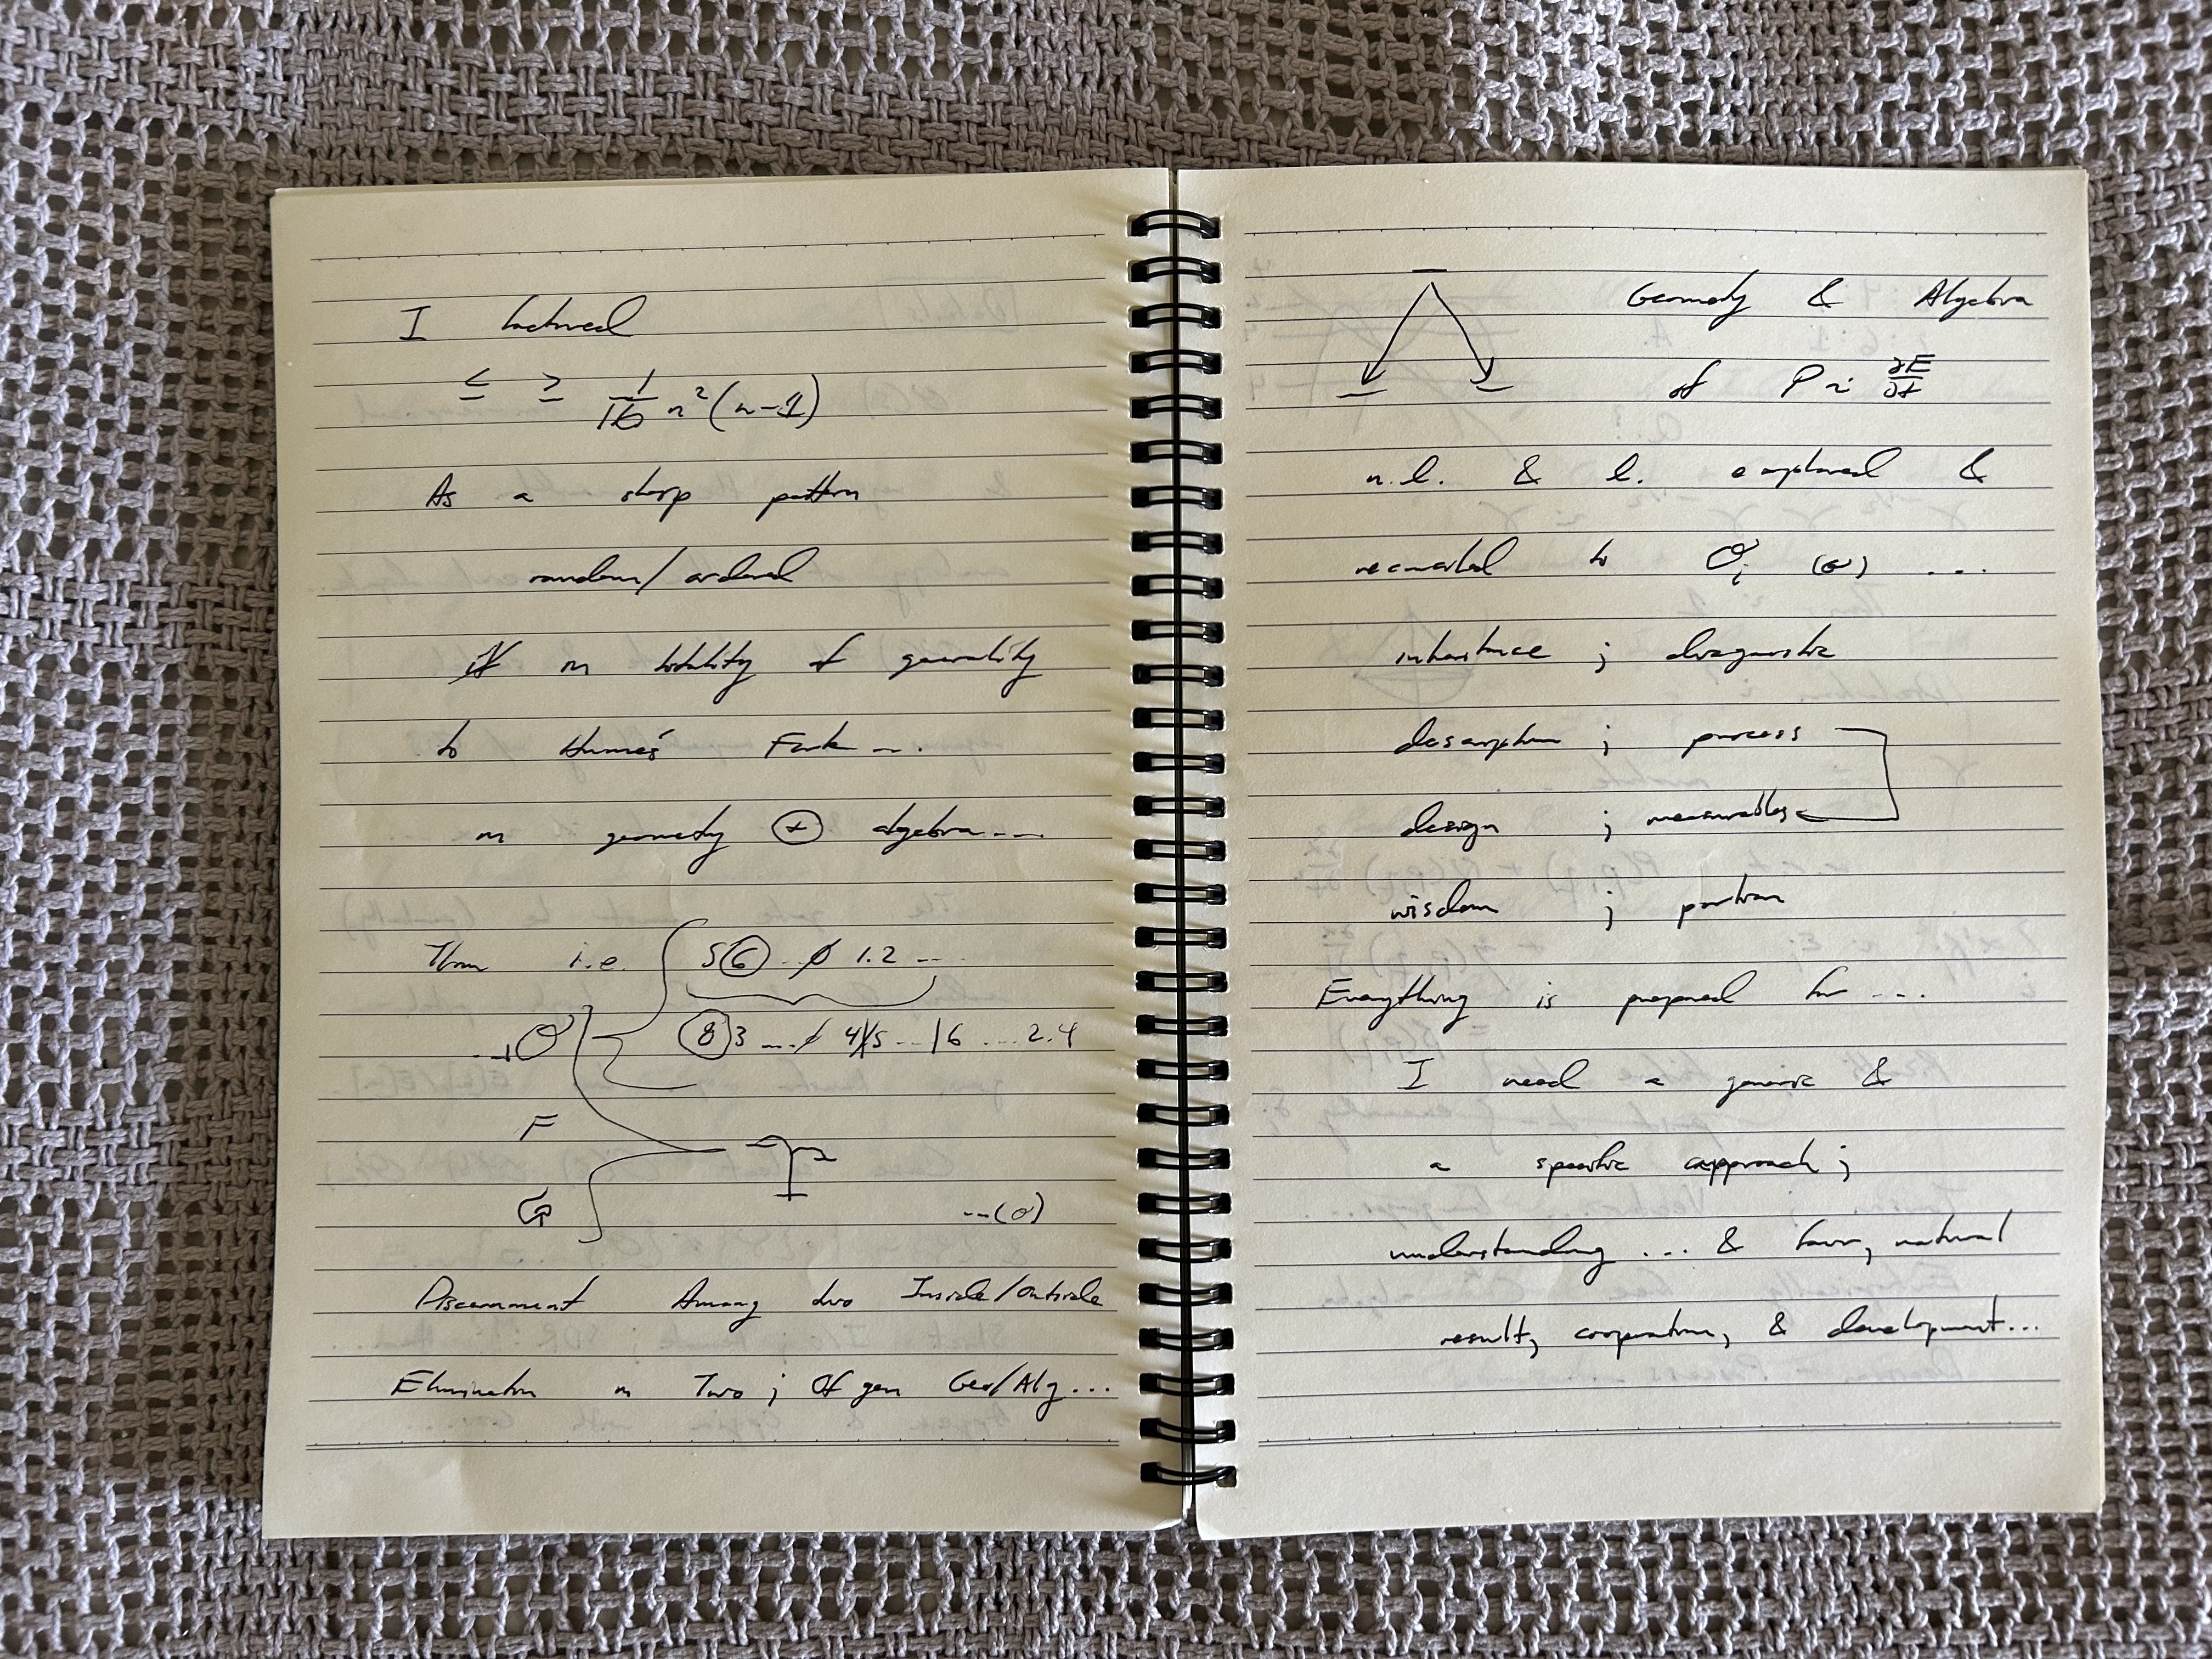 I factored
≤ ≥ 1/16 n²(n-1)
As a sharp pattern
random/ordered
in totality of generality
to Hume's Fork ...
in geometry + algebra ...
i.e. 5 6 .. ∅ 1.2 ...
8 3 ... 4 5 ... 6 ... 2.4
F
G
...(σ)
Discernment Among two Inside/Outside
Elimination in Two ; Of gen Geo/Alg...
Geometry & Algebra
of P ~ ∂E/∂t
n.l. & l. explored &
to σᵢ (σ) ...
inheritance ; diagnostic
description ; process
design ; measurables
wisdom ;
Everything is prepared for ...
I need a generic &
a specific approach ;
understanding ... & natural
result, cooperation, & development...